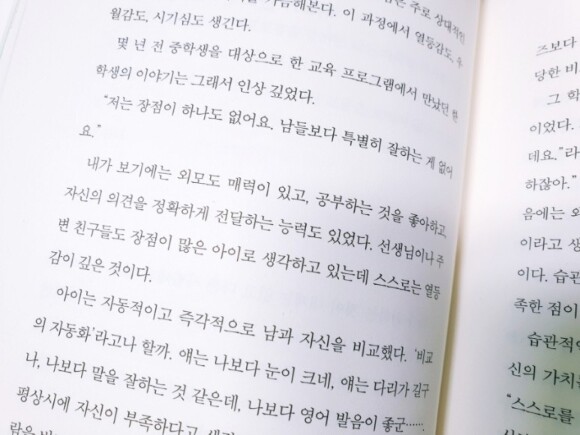 가늠해본다. 이 과정에서 열등감도, 우
월감도, 시기심도 생긴다.
몇 년 전 중학생을 대상으로 한 교육 프로그램에서 만났던 한
학생의 이야기는 그래서 인상 깊었다.
“저는 장점이 하나도 없어요. 남들보다 특별히 잘하는 게 없어
요.”
내가 보기에는 외모도 매력이 있고, 공부하는 것을 좋아하고,
자신의 의견을 정확하게 전달하는 능력도 있었다. 선생님이나 주
변 친구들도 장점이 많은 아이로 생각하고 있는데 스스로는 열등
감이 깊은 것이다.
아이는 자동적이고 즉각적으로 남과 자신을 비교했다. ‘비교
의 자동화’라고나 할까. 얘는 나보다 눈이 크네, 얘는 다리가 길구
나, 나보다 말을 잘하는 것 같은데, 나보다 영어 발음이 좋군…….
평상시에 자신이 부족하다고
즈보다
당한 비
그 학
이었다.
데요.”라
하잖아.”
음에는 외
이라고 생
이다. 습관
족한 점이
습관적
신의 가치
“스스로를